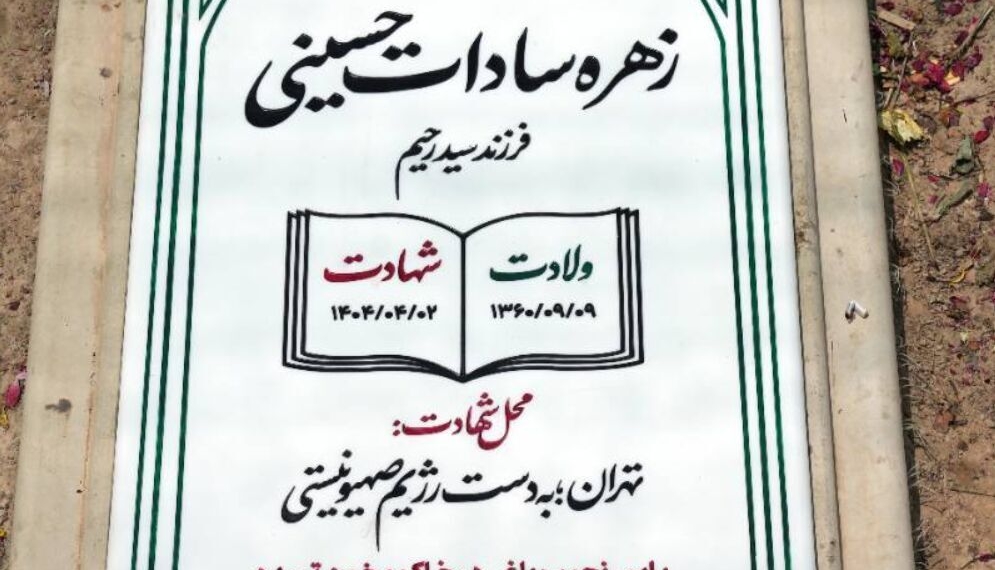 زهره سادات حسینی
فرزند سید رحیم
ولادت
۱۳۶۰/۰۹/۰۹
شهادت
۱۴۰۴/۰۴/۰۲
محل شهادت:
تهران؛ به دست رژیم صهیونیستی